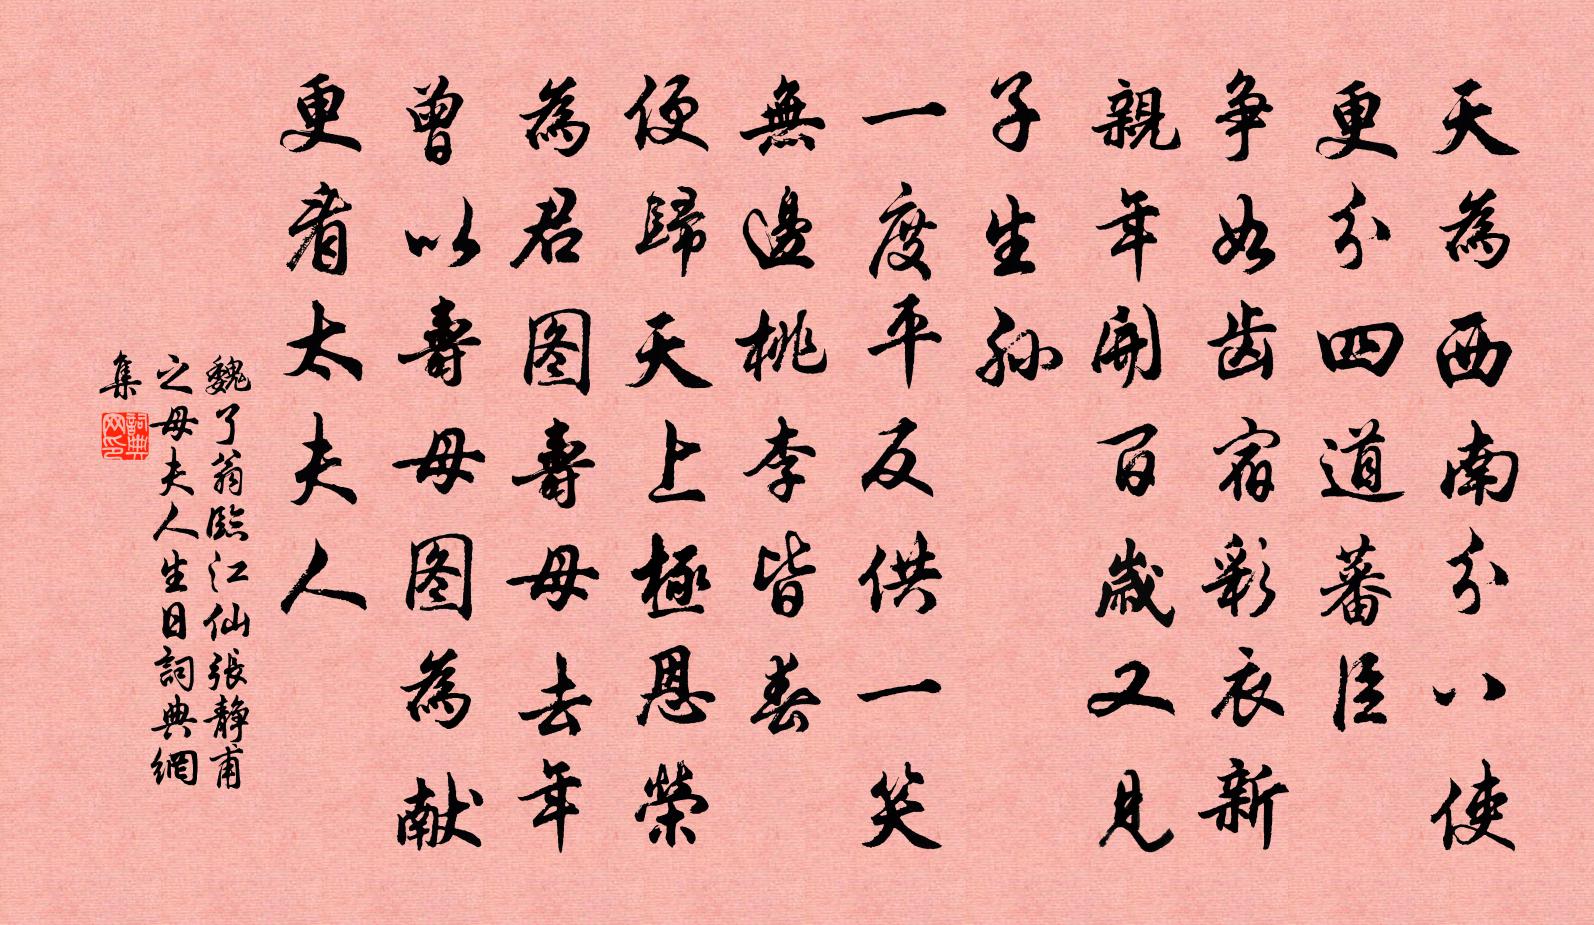 天為西南分八使
更分四道蕃臣
争如齿宿彩衣新
親年開百歲又見
子生孙
一度平反供一笑
無邊桃李皆春
便歸天上極恩榮
為君图壽母去年
曾以壽母图為献
更看太夫人
魏了翁臨江仙張静甫
之母夫人生日詞典網
集
詞典网印